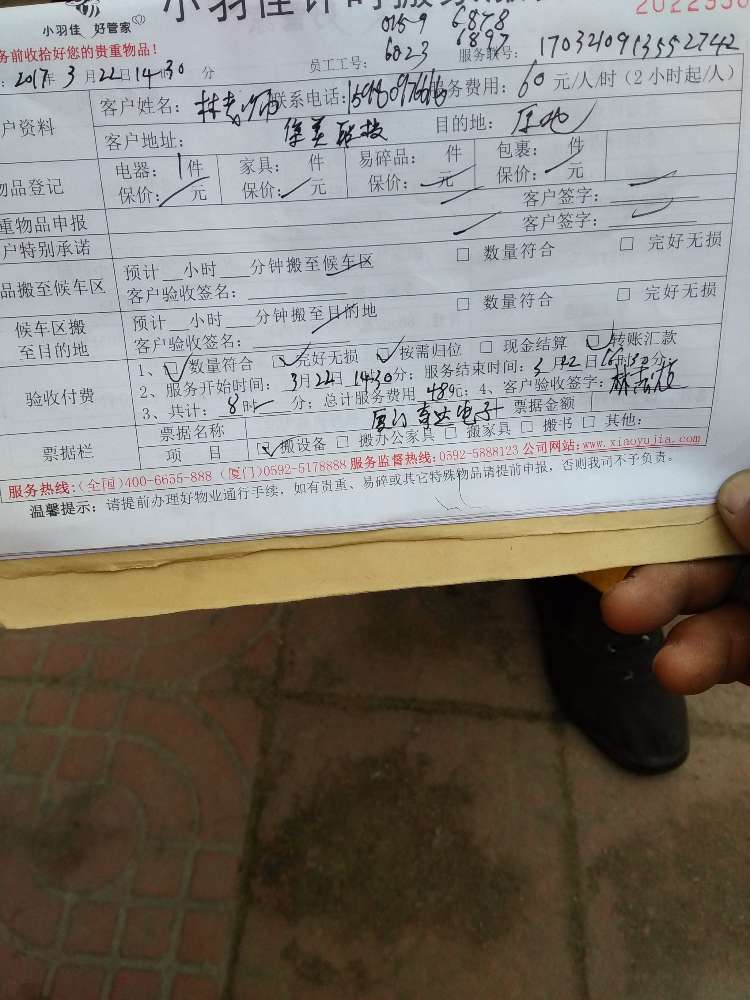 小羽佳 好管家
小羽佳计时搬
务前收拾好您的贵重物品!
6878
6023 6897
员工工号:
服务联号: 17032109135552742
: 2017年 3月 22日 14时30分
户资料
客户姓名: 林 联系电话: 服务费用: 60 元/人/时 (2小时起/人)
客户地址: 目的地: 原地
物品登记
电器: 1件 家具: 件 易碎品: 件 包裹: 件
保价: 元 保价: 元 保价: 元 保价: 元
重物品申报 客户签字:
户特别承诺 客户签字:
品搬至候车区
预计 小时 分钟搬至候车区 □ 数量符合 □ 完好无损
客户验收签名:
候车区搬至目的地
预计 小时 分钟搬至目的地 □ 数量符合 □ 完好无损
客户验收签名:
验收付费
1、☑ 数量符合 ☑ 完好无损 ☑ 按需归位 □ 现金结算 ☑ 转账汇款
2、服务开始时间: 3月22日 14时30分; 服务结束时间: 3月22日16时30分;
3、共计: 8时 分; 总计服务费用 480元; 4、客户验收签字:
票据栏
票据名称 厦门 电子 票据金额
项 目 ☑ 搬设备 □ 搬办公家具 □ 搬家具 □ 搬书 □ 其他:
服务热线: (全国)400-6655-888 (厦门)0592-5178888 服务监督热线: 0592-5888123 公司网站: www.xiaoyujia.com
温馨提示: 请提前办理好物业通行手续, 如有贵重、易碎或其它特殊物品请提前申报, 否则我司不予负责。